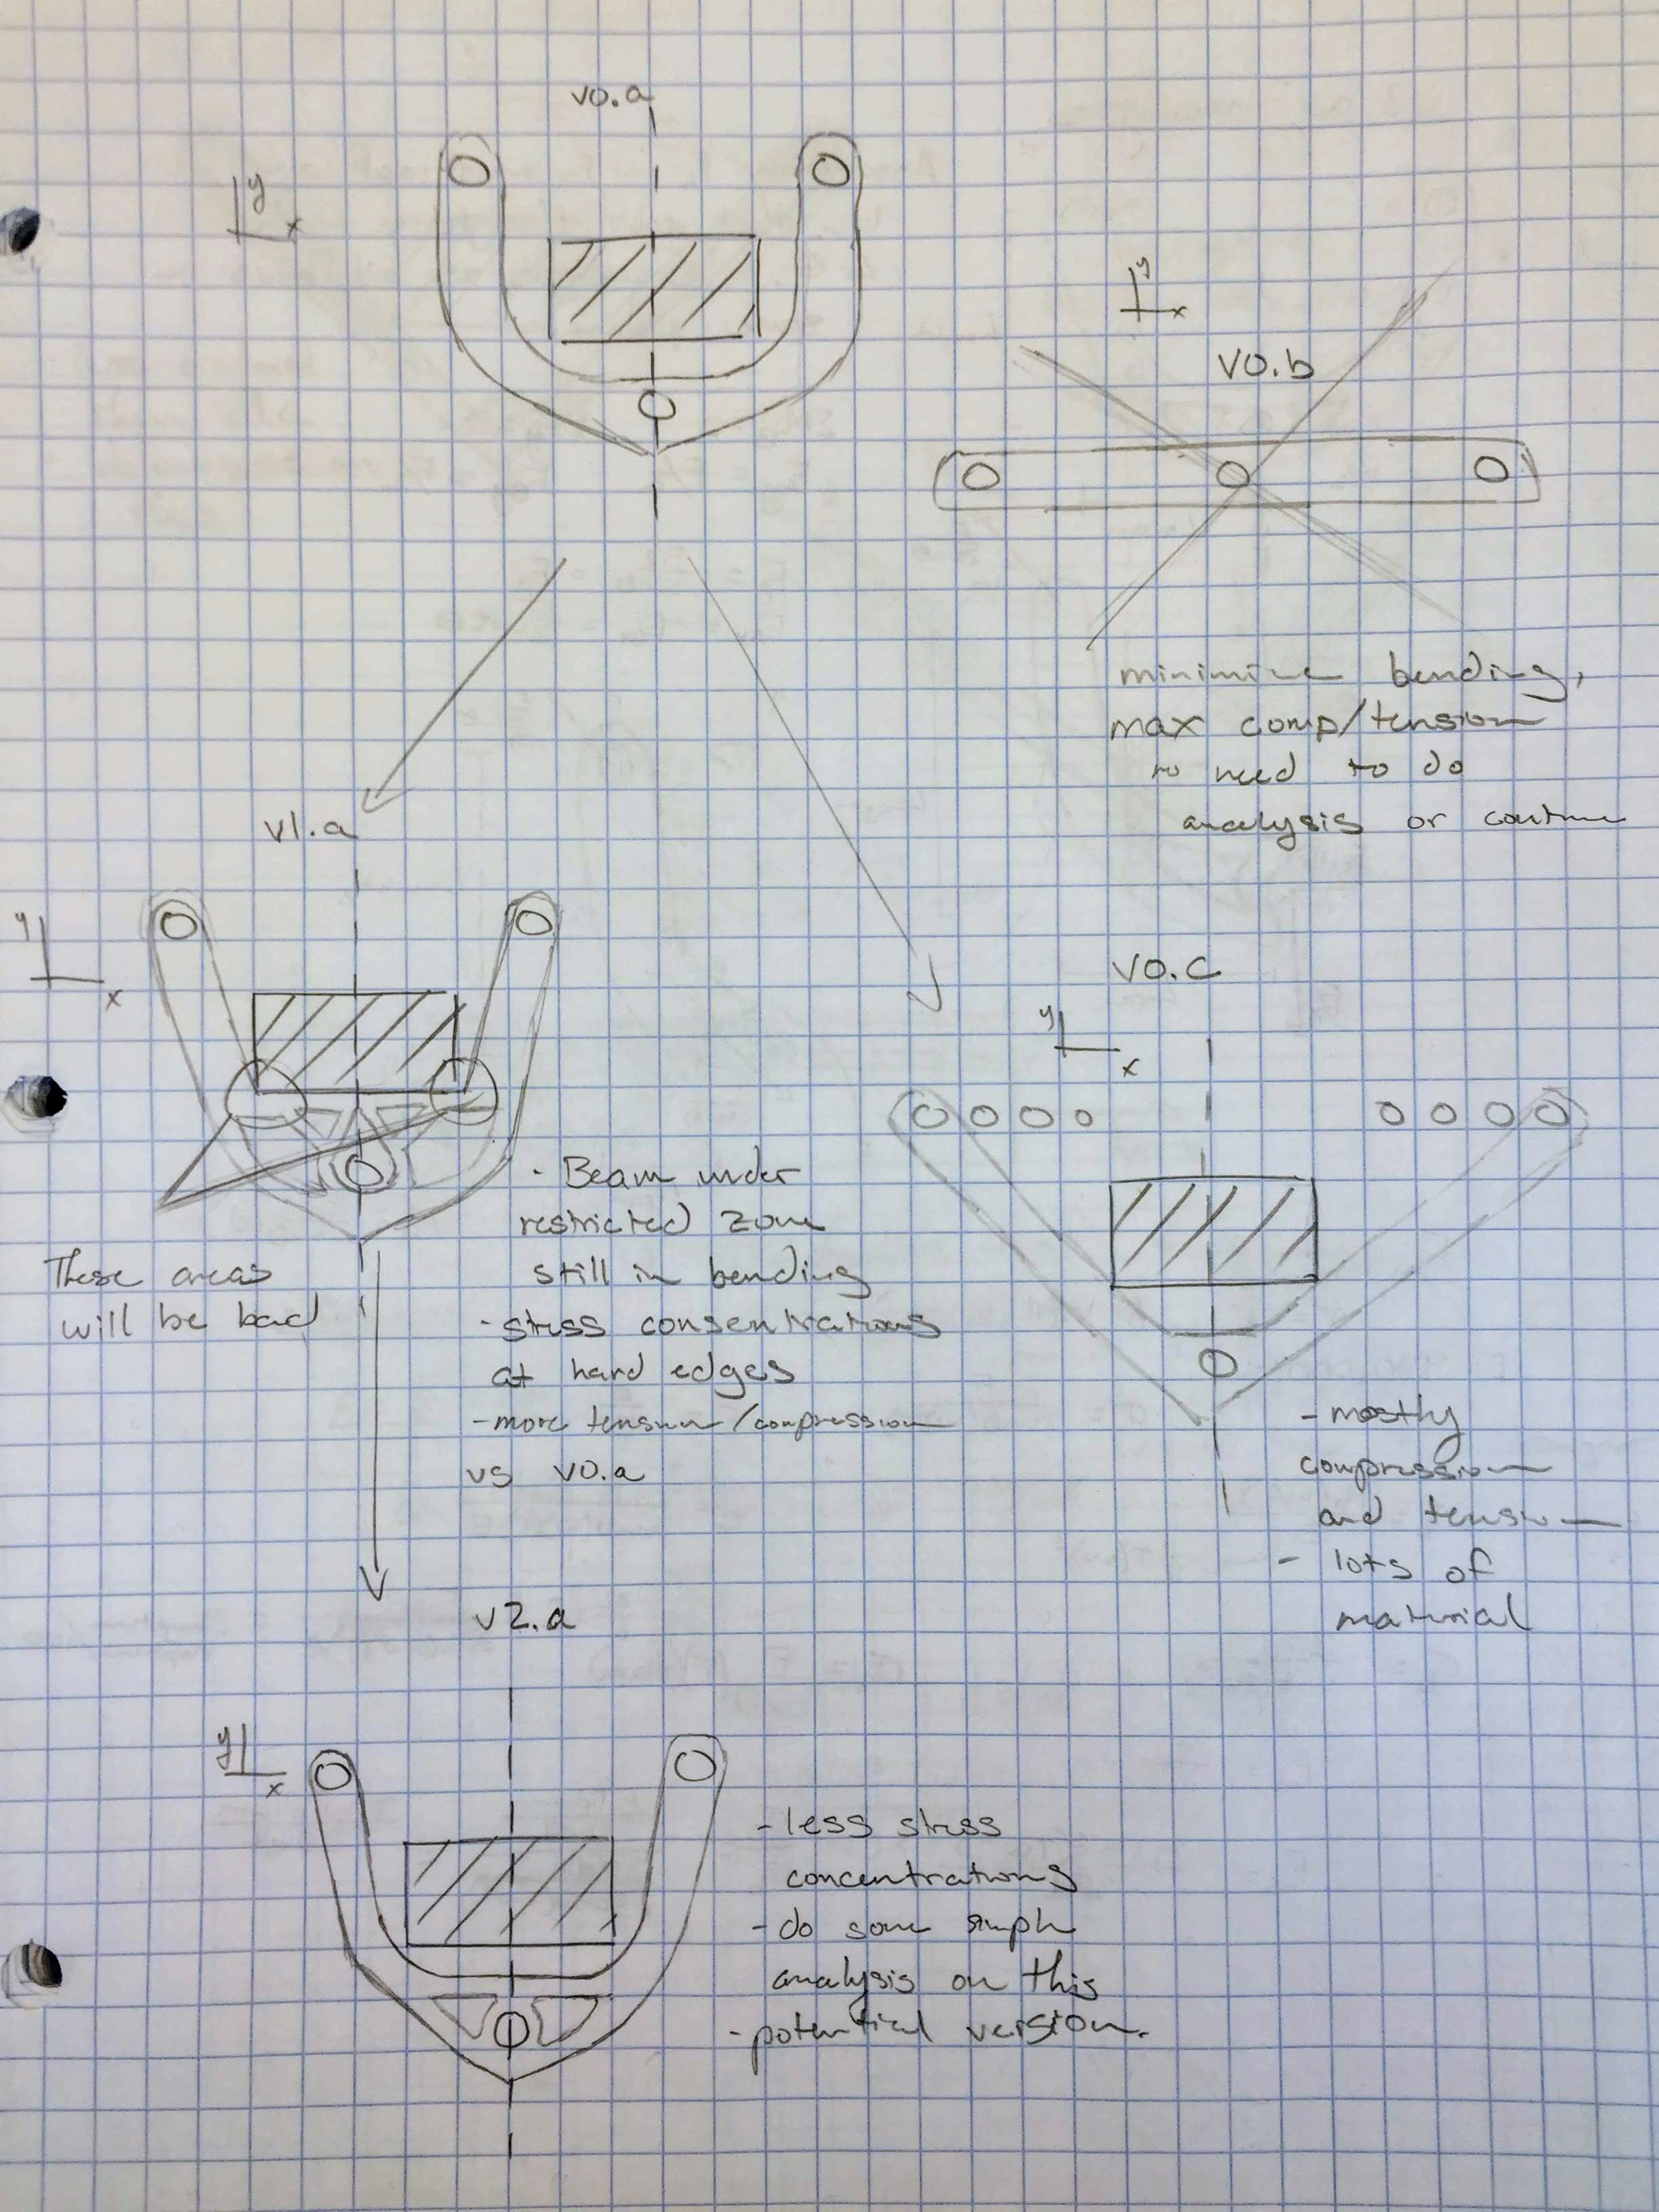 v0.a
y
x
y
x
v0.b
minimize bending,
max comp/tension
need to do
analysis or continue
v1.a
y
x
These areas
will be bad
- Beam under
restricted zone
still in bending
- stress consentrations
at hard edges
- more tension/compression
vs v0.a
v0.c
y
x
- mostly
compression
and tension
- lots of
material
v2.a
y
x
- less stress
concentrations
- do some simple
analysis on this
- potential version.